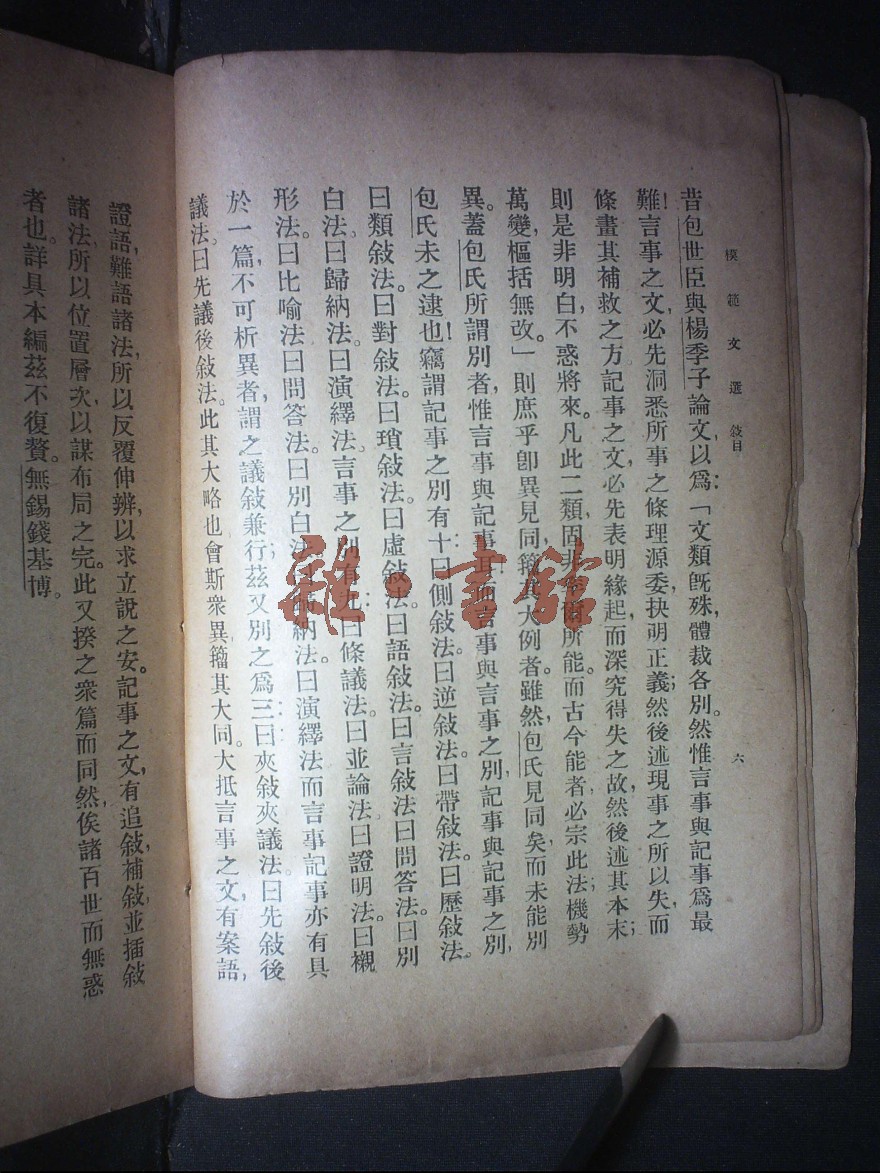 模範文選 敍目
六
昔包世臣與楊季子論文，以爲：「文類旣殊，體裁各別。然惟言事與記事爲最
難！言事之文，必先洞悉所事之條理源委，抉明正義；然後述現事之所以失，而
條畫其補救之方。記事之文，必先表明緣起，而深究得失之故；然後述其本末；
則是非明白，不惑將來。凡此二類，固非率爾所能。而古今能者，必宗此法。機勢
萬變，樞括無改。」則庶乎卽異見同，籀其大例者。雖然，包氏見同矣，而未能別
異。蓋包氏所謂別者，惟言事與記事耳；而言事與言事之別，記事與記事之別，
包氏未之逮也！竊謂記事之別有十：曰側敍法。曰逆敍法。曰帶敍法。曰歷敍法。
曰類敍法。曰對敍法。曰瑣敍法。曰虛敍法。曰語敍法。曰言敍法。曰問答法。曰別
白法。曰歸納法。曰演繹法。言事之別有九：曰條議法。曰並論法。曰證明法。曰襯
形法。曰比喻法。曰問答法。曰別白法。曰歸納法。曰演繹法。而言事記事亦有具
於一篇，不可析異者，謂之議敍兼行；茲又別之爲三：曰夾敍夾議法。曰先敍後
議法。曰先議後敍法。此其大略也。會斯衆異，籀其大同。大抵言事之文，有案語，
證語，難語諸法，所以反覆伸辨，以求立說之安。記事之文，有追敍，補敍，並插敍
諸法，所以位置層次，以謀布局之完。此又揆之衆篇而同然，俟諸百世而無惑
者也。詳具本編，茲不復贅。無錫錢基博。
雜·書館